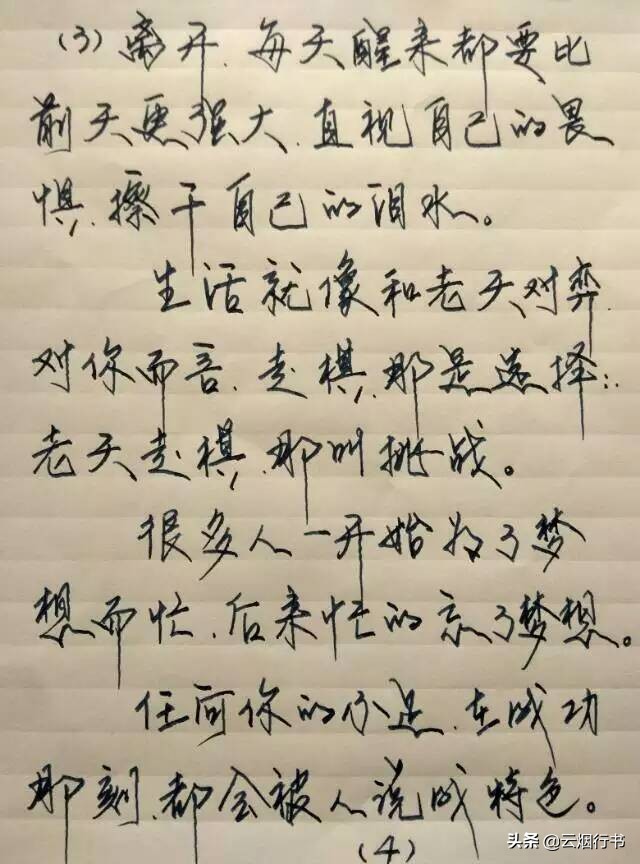 (3) 离开，每天醒来都要比
前天更强大，直视自己的畏
惧，擦干自己的泪水。
生活就像和老天对弈，
对你而言，走棋，那是选择；
老天走棋，那叫挑战。
很多人一开始为了梦
想而忙，后来忙的忘了梦想。
任何你的不足，在成功
那刻，都会被人说成特色。
(4)
头条 @云烟行书